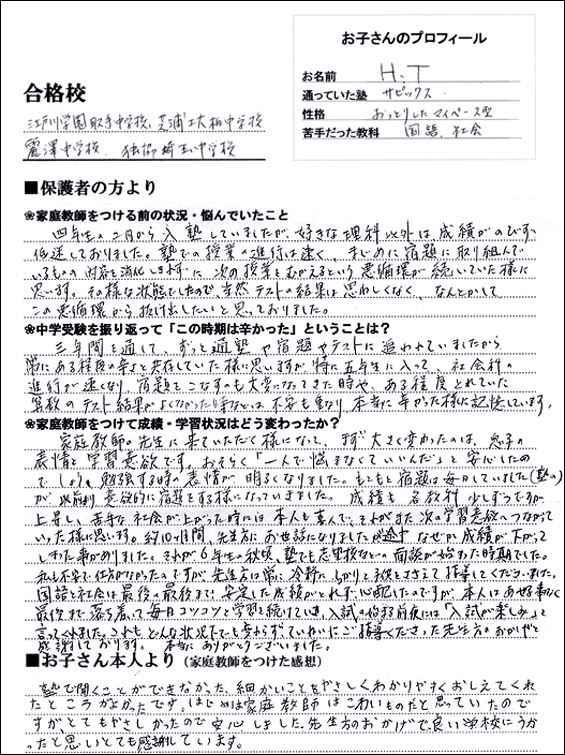 お子さんのプロフィール
お名前 H.T
通っていた塾 サピックス
性格 おっとりしたマイペース型
苦手だった教科 国語、社会
合格校
江戸川学園取手中学校、芝浦工大柏中学校
麗澤中学校、独協埼玉中学校
■保護者の方より
❀家庭教師をつける前の状況・悩んでいたこと
四年生の二月から入塾していましたが、好きな理科以外は成績がのびず
低迷しておりました。塾での授業の進行は速く、まじめに宿題に取り組んで
いるものの内容を消化しきれずに次の授業をむかえるという悪循環が続いていた様に
思います。その様な状態でしたので、当然テストの結果は思わしくなく、なんとかして
この悪循環から抜け出したいと思っておりました。
❀中学受験を振り返って「この時期は辛かった」ということは？
三年間を通して、ずっと通塾や宿題やテストに追われていましたから
常にある程度の辛さと共存していた様に思いますが特に五年生に入って、社会科の
進行が速くなり、宿題をこなすのも大変になってきた時や、ある程度とれていた
算数のテスト結果がよくなかった時などは、不安も重なり本当に辛かった様に記憶しています。
❀家庭教師をつけて成績・学習状況はどう変わったか？
家庭教師の先生に来ていただく様になって、まず大きく変わったのは、息子の
表情と学習意欲です。おそらく「一人で悩まなくていいんだ」と安心したの
でしょう。勉強する時の表情が明るくなりました。もともと宿題は毎日していました(塾の)
が以前より意欲的に宿題をする様になっていきました。成績も各教科少しずつですが
上昇し、苦手な社会が上がった時には本人も喜んで、それがまた次の学習意欲へつながって
いった様に思います。約10ヶ月間、先生方にお世話になりましたが途中なぜか成績が下がって
しまった事がありました。それが6年生の秋頃、塾でも志望校などの面談が始まった時期でした。
私も不安で仕方がなかったのですが先生方は常に冷静に、しっかりと子供をささえて指導してくださいました。
国語と社会は最後の最後まで安定した成績がとれず心配したのですが本人はあせる事なく
最後まで落ち着いて毎日コツコツと学習を続けていき、入試の始まる前夜には「入試が楽しみ」と
言ってくれました。これもどんな状況下でも変わらずていねいにご指導くださった先生方のおかげだと
感謝しております。本当にありがとうございました。
■お子さん本人より（家庭教師をつけた感想）
塾で聞くことができなかった、細かいことをやさしくわかりやすくおしえてくれ
たところがよかったです。はじめは家庭教師はこわいものだと思っていたので
すが、とてもやさしかったので安心しました。先生方のおかげで、良い学校にうか
ったと思いとても感謝しています。